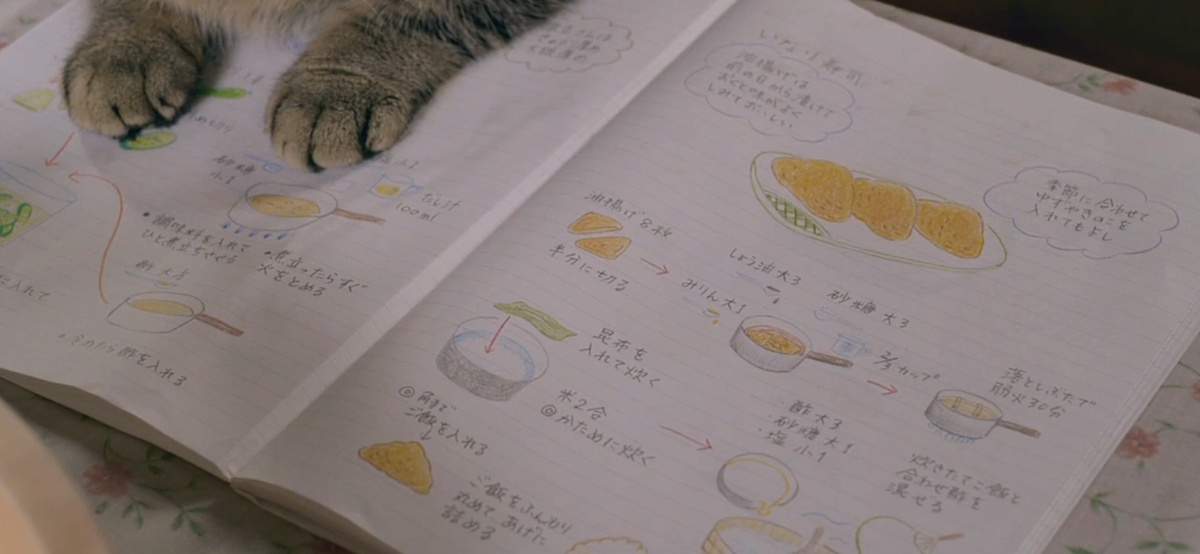 砂糖
小1
だし汁
100ml
・調味料を入れて
ひと煮立ちさせる
・煮立ったらすぐ
火をとめる
に入れて
・冷めたら酢を入れる
いなり寿司
油揚げは
前の日から煮いて
おくと味がよく
しみておいしい
季節に合わせて
ゆずやきのこを
入れてもよし
油揚げ8枚
半分に切る
しょう油 大3
みりん 大1
砂糖 大3
2/3カップ
落としぶたで
弱火30分
昆布を
入れて炊く
米2合
◎かために炊く
・酢 大3
・砂糖 大1
・塩 小1
炊きたてご飯と
合わせ酢を
混ぜる
◎角まで
ご飯を入れる
ご飯をふんわり
丸めて あげに
詰める